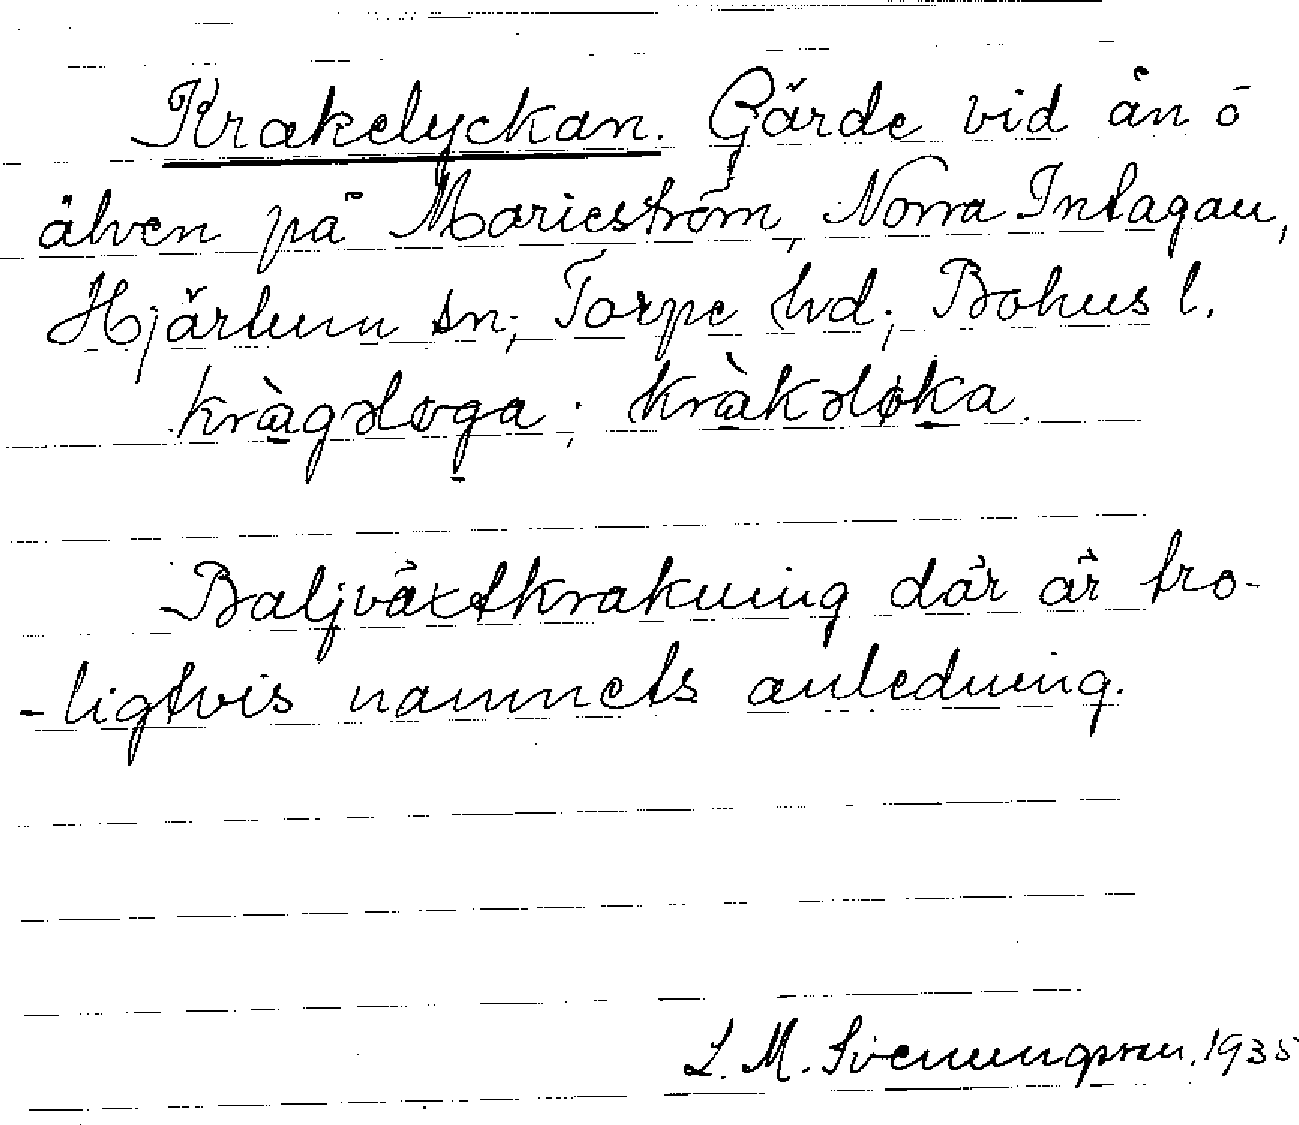 Krakelyckan. Gärde vid ån ö
älven på Marieström, Norra Intagan,
Hjärtum sn; Torpe hd; Bohus l.
kràgəlɷga; kràkəløka.
Baljväxtkrakning där är tro-
-ligtvis namnets anledning.
L. M. Svenungsson. 1935